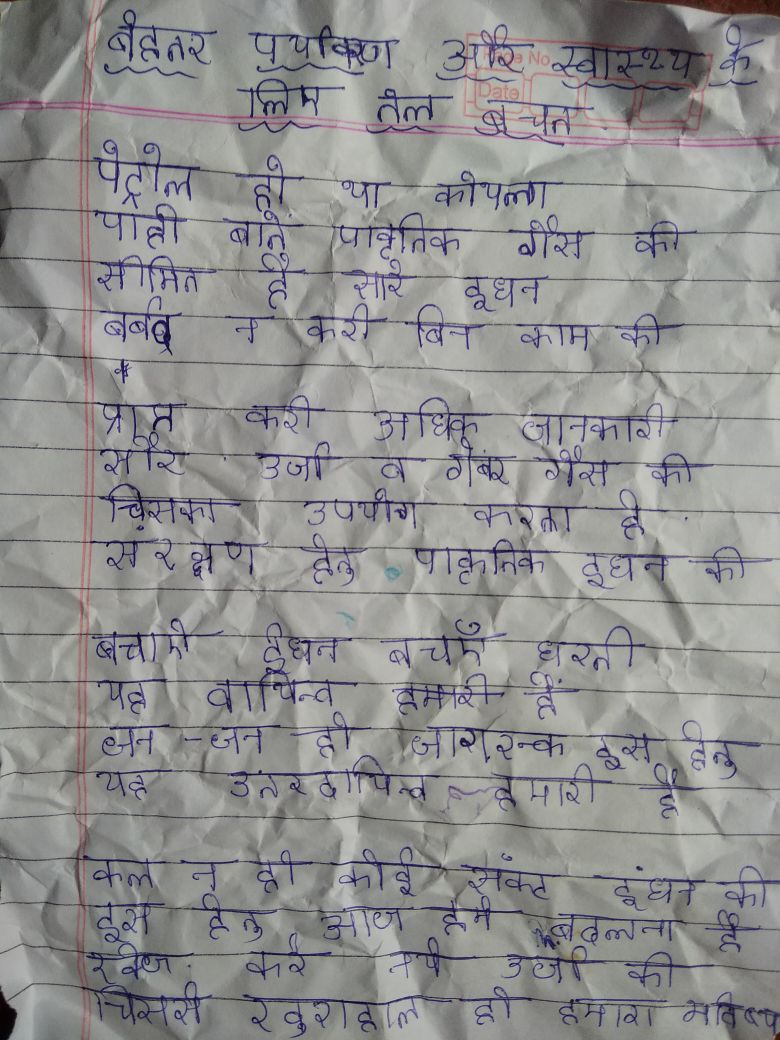 बेहतर पर्यावरण और स्वास्थ्य के
लिए तेल बचत
Page No.
Date
पेट्रोल हो या कोयला
याही बाते प्राकृतिक गैस की
सीमित है सारे इंधन
बर्बाद न करी बिन काम की
प्राप्त करी अधिक जानकारी
सौर उर्जा व गोबर गैस की
जिसका उपयोग करना है
संरक्षण हेतु प्राकृतिक इंधन की
बचाऐ ईंधन बचाऐ धरती
यह दायित्व हमारी हैं
जन-जन हो जागरूक इस हेतु
यह उत्तरदायित्व हमारी है
कल न हो कोई संकट इंधन की
इस हेतु आज हमे बदलना है
खोज करे नये उर्जा की
जिससे खुशहाल हो हमारा भविष्य